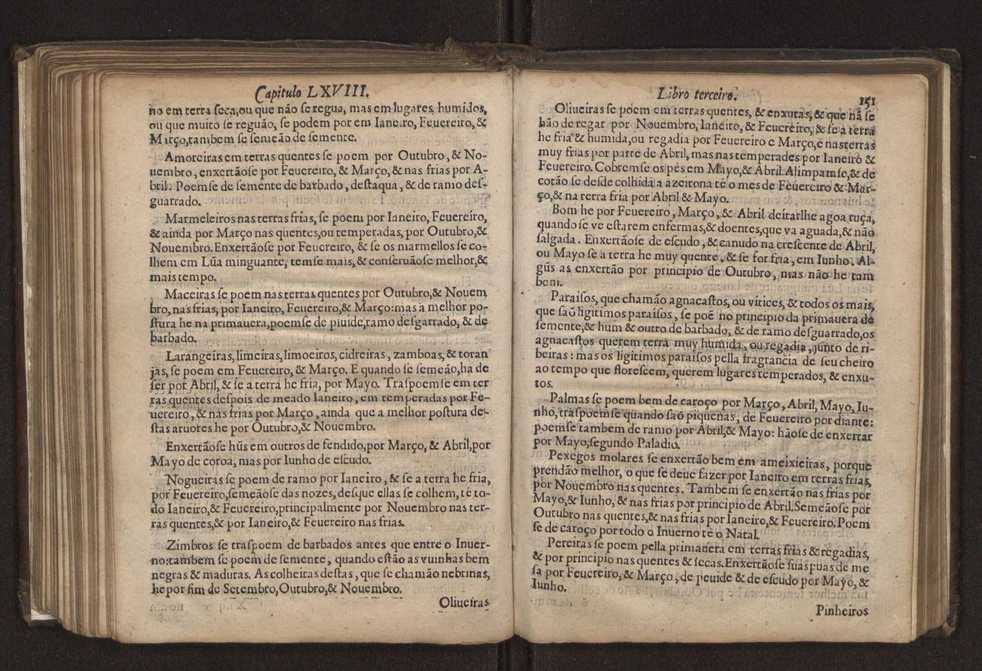 Capitulo LXVIII.
no em terra seca,ou que não se regua, mas em lugares humidos,
ou que muito se reguão, se podem por em Ianeiro, Feuereiro, &
Março,tambem se semeão de semente.
Amoreiras em terras quentes se poem por Outubro, & No-
uembro, enxertãose por Feuereiro, & Março, & nas frias por A-
bril. Poemse de semente de barbado, destaqua, & de ramo des-
guarrado.
Marmeleiros nas terras frias, se poem por Ianeiro, Feuereiro,
& ainda por Março nas quentes,ou temperadas, por Outubro,&
Nouembro. Enxertãose por Feuereiro, & se os marmellos se co-
lhem em Lũa minguante, temse mais, & conseruãose melhor,&
mais tempo.
Maceiras se poem nas terras quentes por Outubro,& Nouem
bro, nas frias, por Ianeiro, Feuereiro,& Março: mas a melhor po-
stura he na primauera,poemse de piuide,ramo desgarrado, & de
barbado.
Larangeiras, limeiras, limoeiros, cidreiras, zamboas, & toran
jas, se poem em Feuereiro, & Março. E quando se semeão,ha de
ser por Abril, & se a terra he fria, por Mayo. Traspoemse em ter
ras quentes despois de meado Ianeiro, em temperadas por Fe-
uereiro, & nas frias por Março, ainda que a melhor postura de-
stas aruores he por Outubro,& Nouembro.
Enxertãose hũs em outros de fendido,por Março, & Abril,por
Mayo de coroa, mas por Iunho de escudo.
Nogueiras se poem de ramo por Ianeiro, & se a terra he fria,
por Feuereiro,semeãose das nozes, desque ellas se colhem, té to-
do Ianeiro,& Feuereiro,principalmente por Nouembro nas ter-
ras quentes,& por Ianeiro,& Feuereiro nas frias.
Zimbros se traspoem de barbados antes que entre o Inuer-
no:tambem se poem de semente, quando estão as vuinhas bem
negras & maduras. As colheitas destas, que se chamão nebrinas,
he por fim de Setembro,Outubro,& Nouembro.
Oliueiras
Libro terceiro. 151
Oliueiras se poem em terras quentes, & enxutas, & que nã se
hão de regar por Nouembro, Ianeiro, & Feuereiro, & se a terra
he fria & humida,ou regadia por Feuereiro e Março,e nas terras
muy frias por parte de Abril, mas nas temperades por Ianeiro &
Feuereiro. Cobremse os pès em Mayo,& Abril. Alimpamse,& de
cotão se desde colhida a azeitona té o mes de Feuereiro & Mar-
ço,& na terra fria por Abril & Mayo.
Bom he por Feuereiro, Março, & Abril deitarlhe agoa ruça,
quando se ve estarem enfermas,& doentes,que va aguada,& não
salgada. Enxertãose de escudo, & canudo na crescente de Abril,
ou Mayo se a terra he muy quente, & se for fria, em Iunho. Al-
gũs as enxertão por principio de Outubro, mas não he tam
bem.
Paraisos, que chamão agnacastos, ou vitices, & todos os mais,
que saõ ligitimos paraisos, se poẽ no principio da primauera de
semente,& hum & outro de barbado, & de ramo desguarrado,os
agnacastos querem terra muy humida, ou regadia, junto de ri-
beiras: mas os ligitimos paraisos pella fragrancia de seu cheiro
ao tempo que floreseem, querem lugares temperados, & enxu-
tos.
Palmas se poem bem de caroço por Março, Abril, Mayo, Iu-
nho,traspoemse quando saõ piquenas, de Feuereiro por diante:
poemse tambem de ramo por Abril,& Mayo: hãose de enxertar
por Mayo,segundo Paladio.
Pexegos molares se enxertão bem em ameixieiras, porque
prendão melhor, o que se deue fazer por Ianeiro em terras frias,
por Nouembro nas quentes. Tambem se enxertão nas frias por
Mayo,& Iunho, & nas frias por principio de Abril.Semeãose por
Outubro nas quentes,& nas frias por Ianeiro,& Feuereiro. Poem
se de caroço por todo o Inuerno té o Natal.
Pereiras se poem pella primauera em terras frias & regadias,
& por principio nas quentes & secas. Enxertãose suas puas de me
sa por Feuereiro, & Março, de peuide & de escudo por Mayo, &
Iunho.
Pinheiros